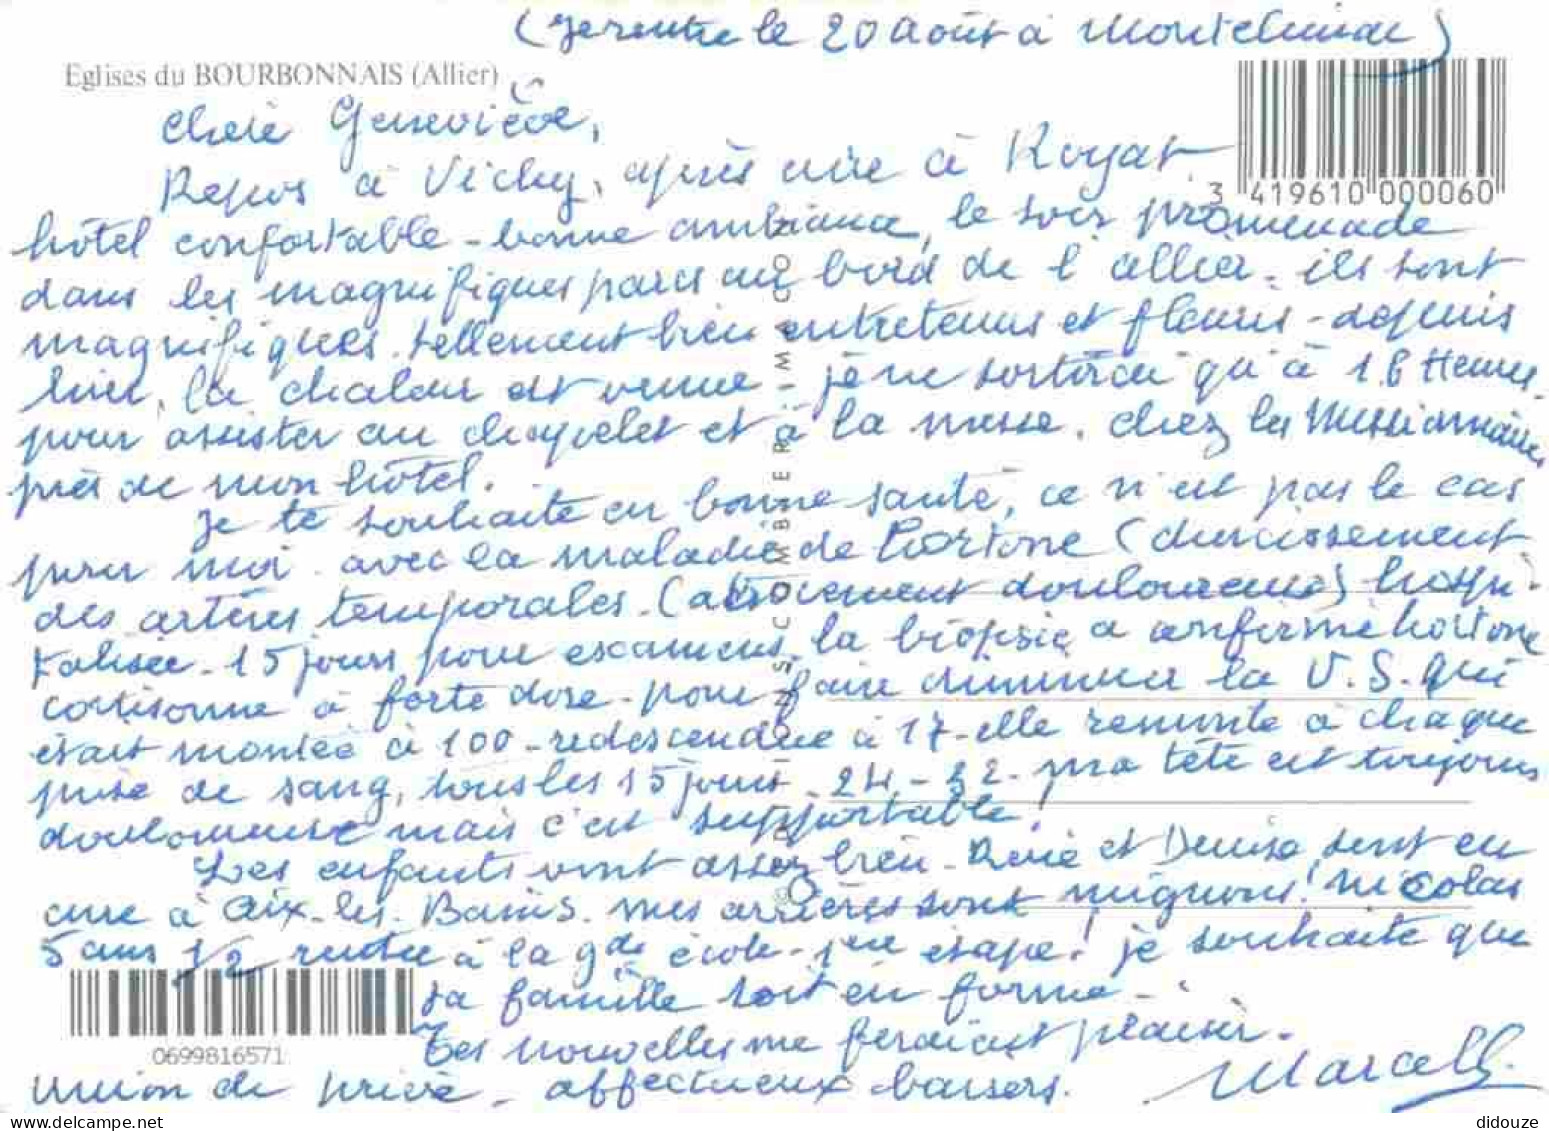 (je rentre le 20 août à Montelimar)
Eglises du BOURBONNAIS (Allier)
Chère Geneviève,
Repos à Vichy, après cure à Royat
3 419610 000060
hôtel confortable - bonne ambiance, le soir promenade
dans les magnifiques parcs au bord de l'allier. ils sont
magnifiques. tellement bien entretenus et fleuris - depuis
hier, la chaleur est venue - je ne sortirai qu'à 16 Heures
pour assister au chapelet et à la messe. chez les Missionnaires
près de mon hôtel.
Je te souhaite en bonne santé, ce n'est pas le cas
pour moi avec la maladie de Hortone (durcissement
des artères temporales. (atrocement douloureux) hospi-
talisée - 15 jours pour examens. la biopsie a confirmé hortone
cortisonne à forte dose - pour faire diminuer la V.S. qui
était montée à 100 - redescendue à 17 - elle remonte à chaque
prise de sang, tous les 15 jours - 24 - 32 - ma tête est toujours
douloureuse mais c'est supportable!
Les enfants vont assez bien - René et Denise sont en
cure à Aix-les-Bains. mes arrières sont mignons! Nicolas
5 ans 1/2 rentre à la gde école - 1ère étape! je souhaite que
ta famille soit en forme -
0699816571
Tes nouvelles me feraient plaisir.
union de prière - affectueux baisers. Marcelle
didouze